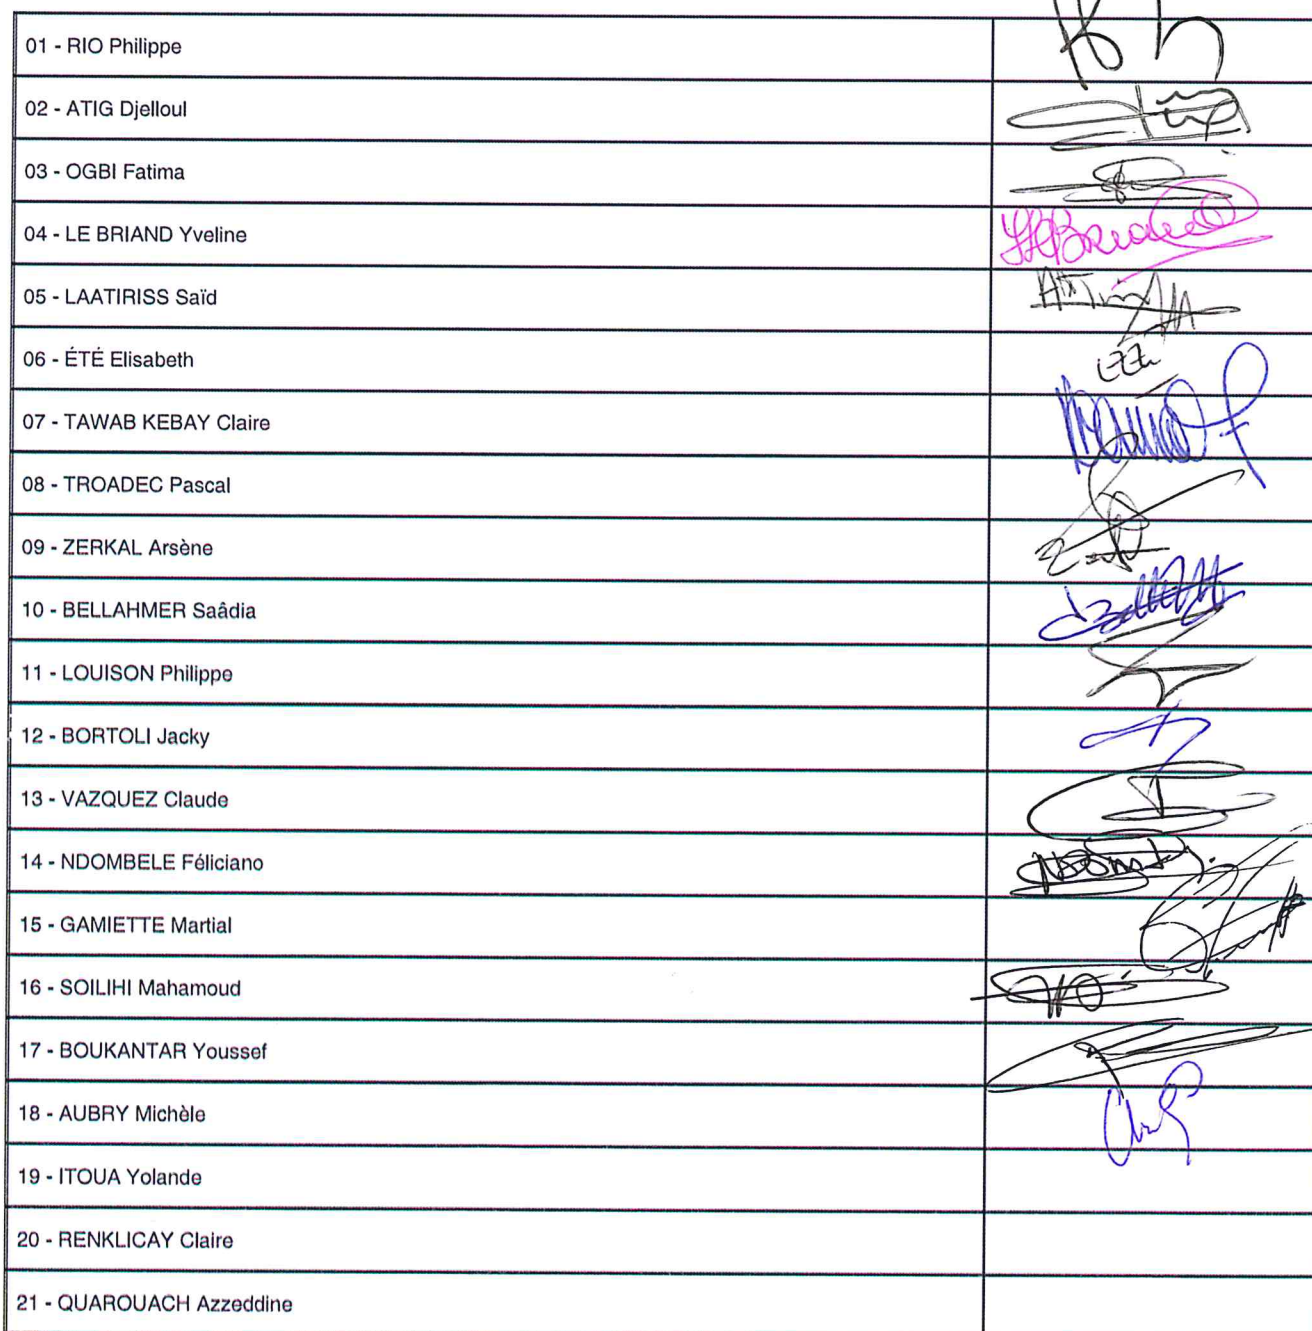 01 - RIO Philippe
02 - ATIG Djelloul
03 - OGBI Fatima
04 - LE BRIAND Yveline
05 - LAATIRISS Saïd
06 - ÉTÉ Elisabeth
07 - TAWAB KEBAY Claire
08 - TROADEC Pascal
09 - ZERKAL Arsène
10 - BELLAHMER Saâdia
11 - LOUISON Philippe
12 - BORTOLI Jacky
13 - VAZQUEZ Claude
14 - NDOMBELE Féliciano
15 - GAMIETTE Martial
16 - SOILIHI Mahamoud
17 - BOUKANTAR Youssef
18 - AUBRY Michèle
19 - ITOUA Yolande
20 - RENKLICAY Claire
21 - QUAROUACH Azzeddine